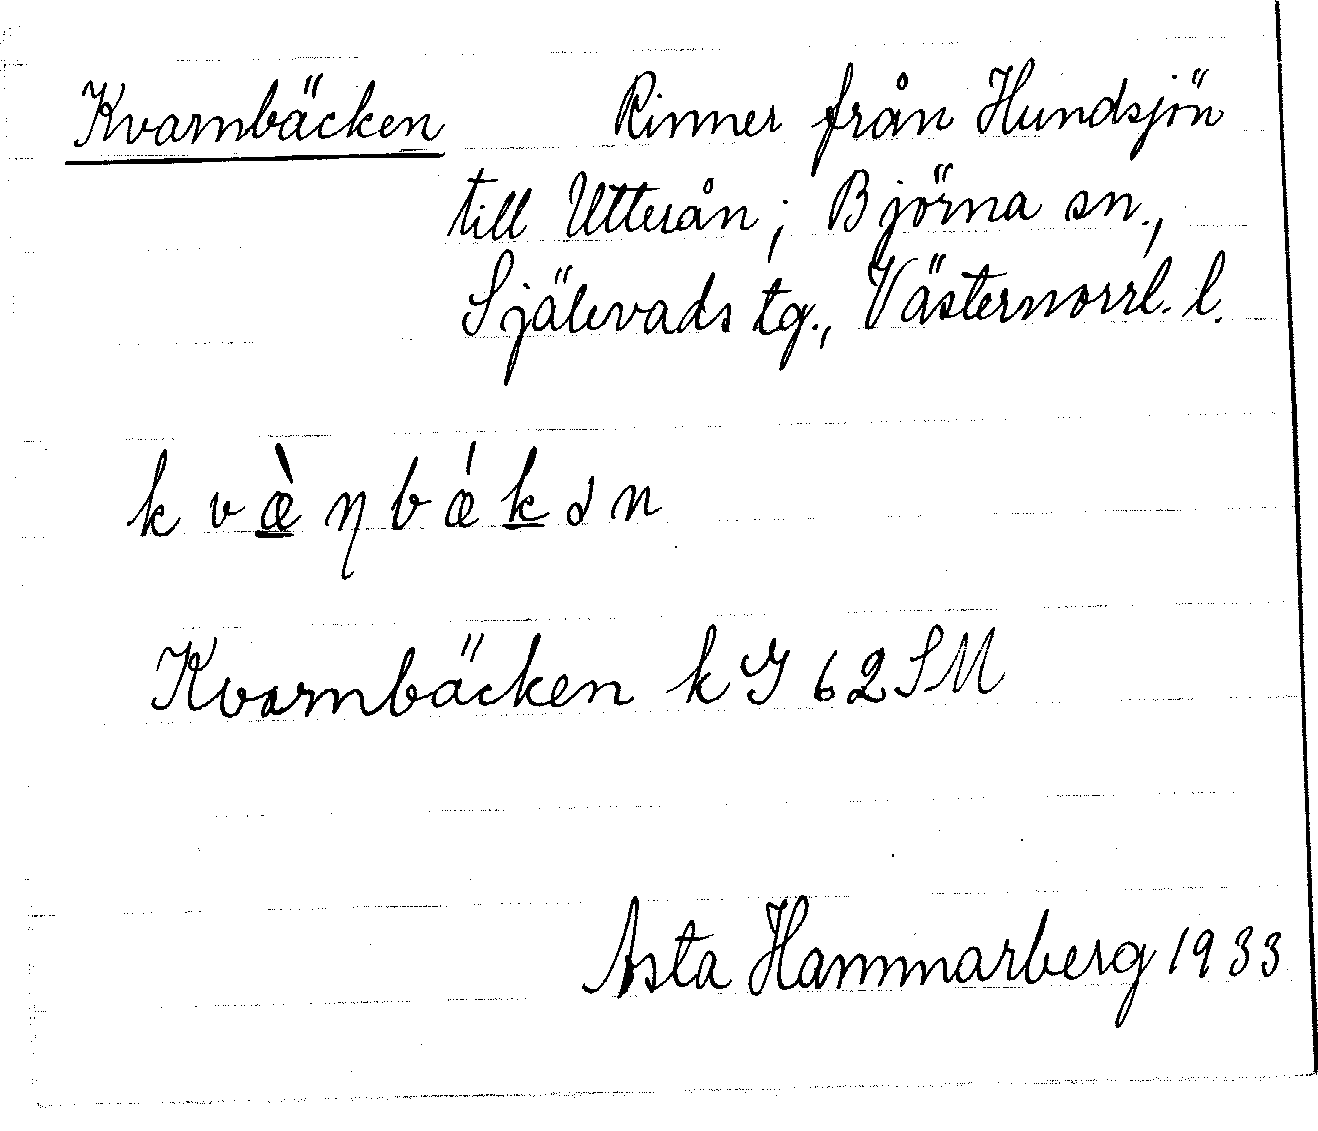 Kvarnbäcken Rinner från Hundsjön
till Utterån; Björna sn.,
Själevads tg., Västernorrl. l.
kvæ̀ŋbǽkən
Kvarnbäcken k J 62 SM
Asta Hammarberg 1933